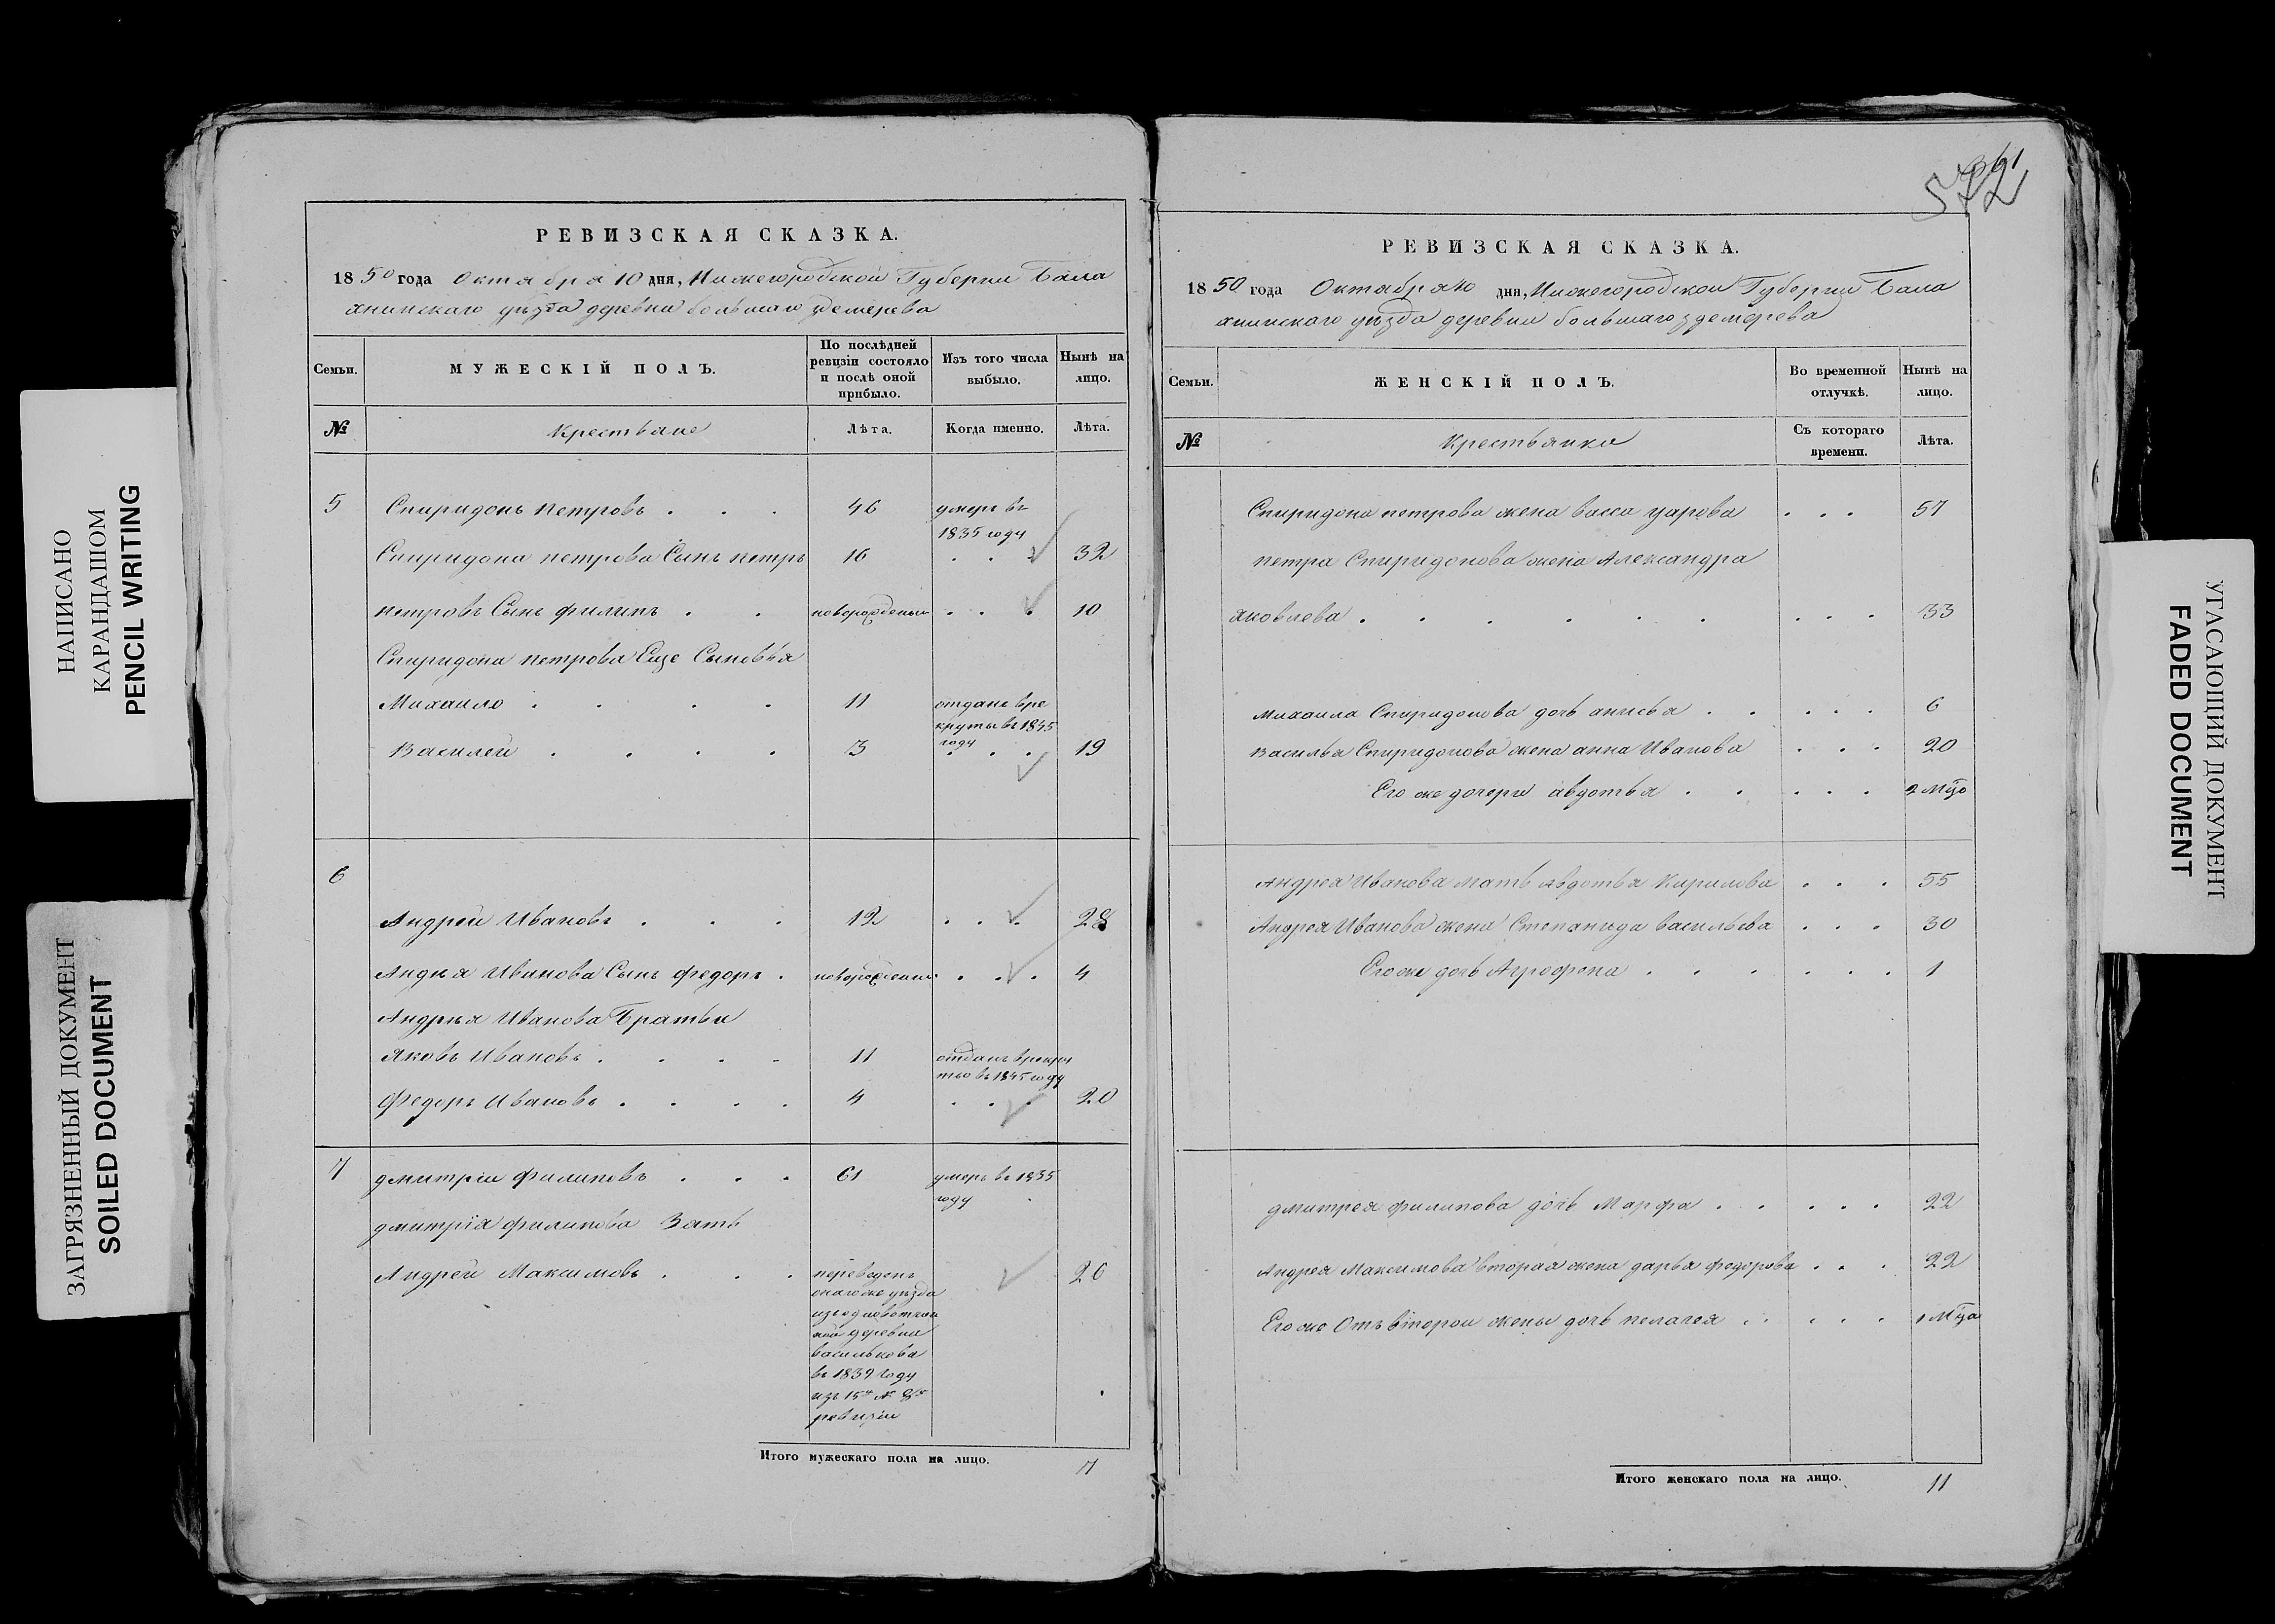 НАПИСАНО
КАРАНДАШОМ
PENCIL WRITING
ЗАГРЯЗНЕННЫЙ ДОКУМЕНТ
SOILED DOCUMENT
РЕВИЗСКАЯ СКАЗКА.
1850 года Октября 10 дня, Нижегородской Губерни Бала
хнинскаго уѣзда деревни большаго
Семьи.
МУЖЕСКІЙ ПОЛЪ.
По послѣдней ревизіи состояло и послѣ оной прибыло.
Изъ того числа выбыло.
Нынѣ на лицо.
№
Крестьяне
Лѣта.
Когда именно.
Лѣта.
5 Спиридонъ Петровъ . . . 46 умеръ въ
1835 году
Спиридона петрова Сынъ петръ 16 . . . 32
петровъ Сынъ филипъ . . новорожденый . . . 10
Спиридона петрова Еще Сыновья
Михаило . . . . 11 отданъ вре
круты въ 1845
году
Василей . . . . 3 . . . 19
6
Андрей Ивановъ . . . 12 . . . 28
Андрея Иванова Сынъ федоръ . новорожденный . . . 4
Андрѣя Иванова Братьи
Яковъ Ивановъ . . . . 11 отданъ врекру
ты въ 1845 году
Федоръ Ивановъ . . . . 4 . . . 20
7 дмитрій Филиповъ . . . 61 умеръ въ 1835
году
дмитрія филипова Зять
Андрей Максимовъ . . . переведенъ 26
онагоже уѣзда
деревни
василькова
въ 1839 году
изъ 15го № 8й
ревизіи
Итого мужескаго пола на лицо. 7
361
572
РЕВИЗСКАЯ СКАЗКА.
1850 года Октября 10 дня, Нижегородской Губерни Бала
хнинскаго уѣзда деревни большаго
Семьи.
ЖЕНСКІЙ ПОЛЪ.
Во временной отлучкѣ.
Нынѣ на лицо.
№
Крестьянки
Съ котораго времени.
Лѣта.
Спиридона петрова жена васса . . . 57
петра Спиридонова жена Александра
яковлева . . . . . . . . . 33
Михаила Спиридонова дочь анисья . . . . . 6
Василья Спиридонова жена анна Иванова . . . 20
Его же дочери авдотья . . . . . 2 Мцо
Андрея Иванова мать авдотья Кирилова . . . 55
Андрея Иванова жена Степанида васильева . . . 30
Егоже дочь Агрофена . . . . . . 1
дмитрея филипова дочь Марфа . . . . . 22
Андрея Максимова вторая жена дарья федорова . . . 22
Егоже Отъ второй жены дочь пелагея . . . . . 1 Мцо
Итого женскаго пола на лицо. 11
УГАСАЮЩИЙ ДОКУМЕНТ
FADED DOCUMENT